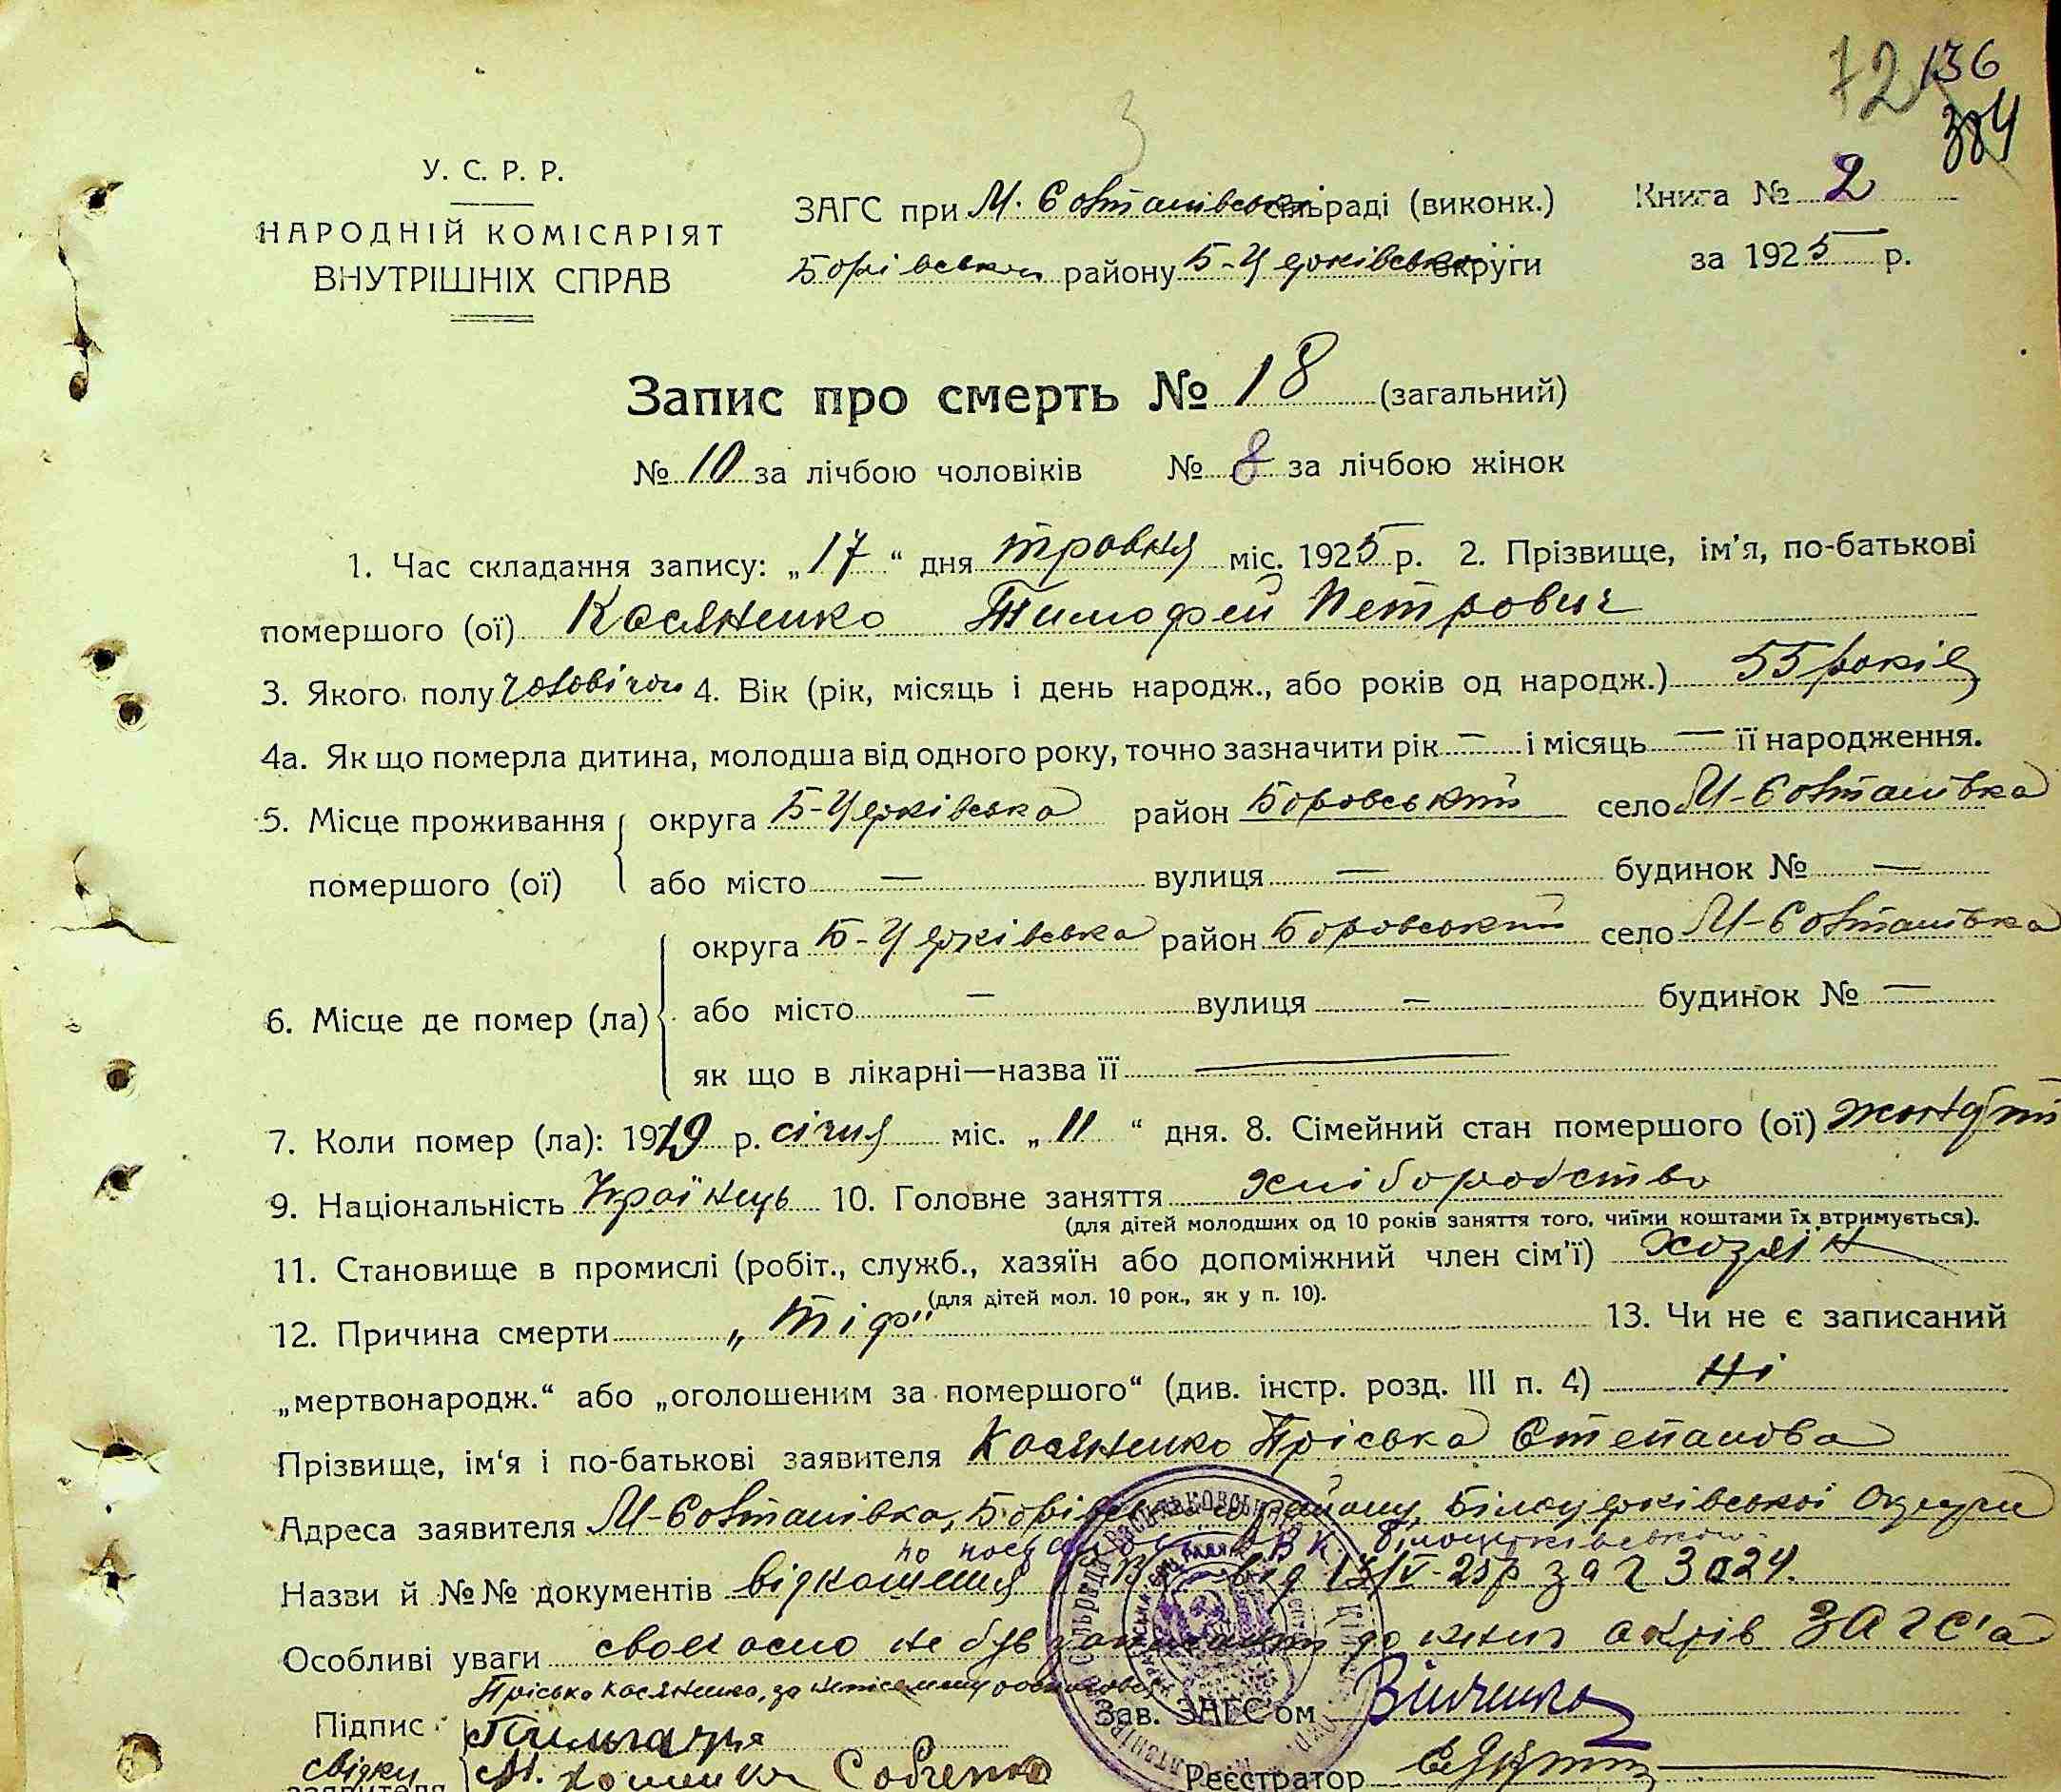 72 136
384
3
У. С. Р. Р.
НАРОДНІЙ КОМІСАРІЯТ
ВНУТРІШНІХ СПРАВ
ЗАГС при М. Солтанівськ сільраді (виконк.)
Борівськом району Б-Церківсько округи
Книга № 2
за 1925 р.
Запис про смерть № 18 (загальний)
№ 10 за лічбою чоловіків № 8 за лічбою жінок
1. Час складання запису: „17“ дня травня міс. 1925 р. 2. Прізвище, ім'я, по-батькові
помершого (ої) Касяненко Тимофей Петрович
3. Якого полу чоловічои 4. Вік (рік, місяць і день народж., або років од народж.) 55 років
4а. Як що померла дитина, молодша від одного року, точно зазначити рік — і місяць — її народження.
5. Місце проживання помершого (ої) округа Б-Церківська район Боровський село М-Солтанівка
або місто — вулиця — будинок № —
6. Місце де помер (ла) округа Б-Церківська район Боровський село М-Солтанівка
або місто — вулиця — будинок № —
як що в лікарні—назва її —
7. Коли помер (ла): 1919 р. січня міс. „11“ дня. 8. Сімейний стан помершого (ої) жонатий
9. Національність Українець 10. Головне заняття хліборобство
(для дітей молодших од 10 років заняття того, чиїми коштами їх втримується).
11. Становище в промислі (робіт., служб., хазяїн або допоміжний член сім'ї) хозяін
(для дітей мол. 10 рок., як у п. 10).
12. Причина смерти „тіф“ 13. Чи не є записаний
„мертвонародж.“ або „оголошеним за помершого“ (див. інстр. розд. III п. 4) Ні
Прізвище, ім'я і по-батькові заявителя Касяненко Пріська Степанова
Адреса заявителя М-Солтанівка, Борівського району, Білоцерківської Округи
по Білоцерківської
Назви й №№ документів відношення від 13/IV-25р за ч 3024.
Особливі уваги своєчасно не був записаний до книг актів ЗАГС'а
Пріська Касяненко, за неписьмену
Підпис
свідки
заявителя
М. Хоменко Совченко
Зав. ЗАГС'ом
Реєстратор